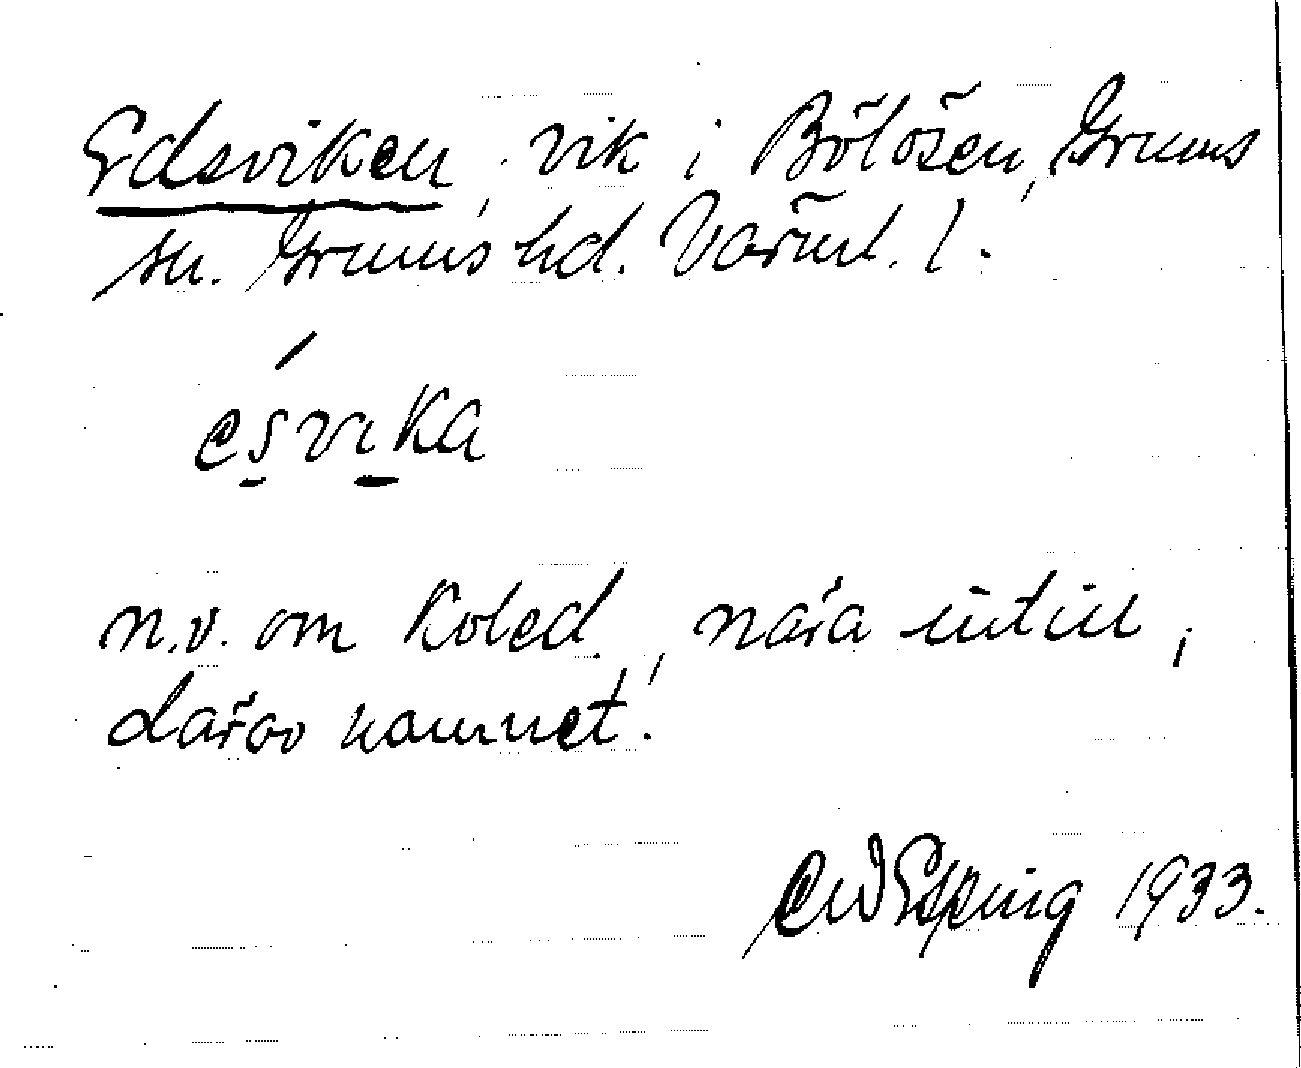 Edsviken, vik i Bölösen, Grums
sn. Grums hd. Värml. l.
esvika
n.v. om Koled, nära intill,
därav namnet.
CW Esping 1933.